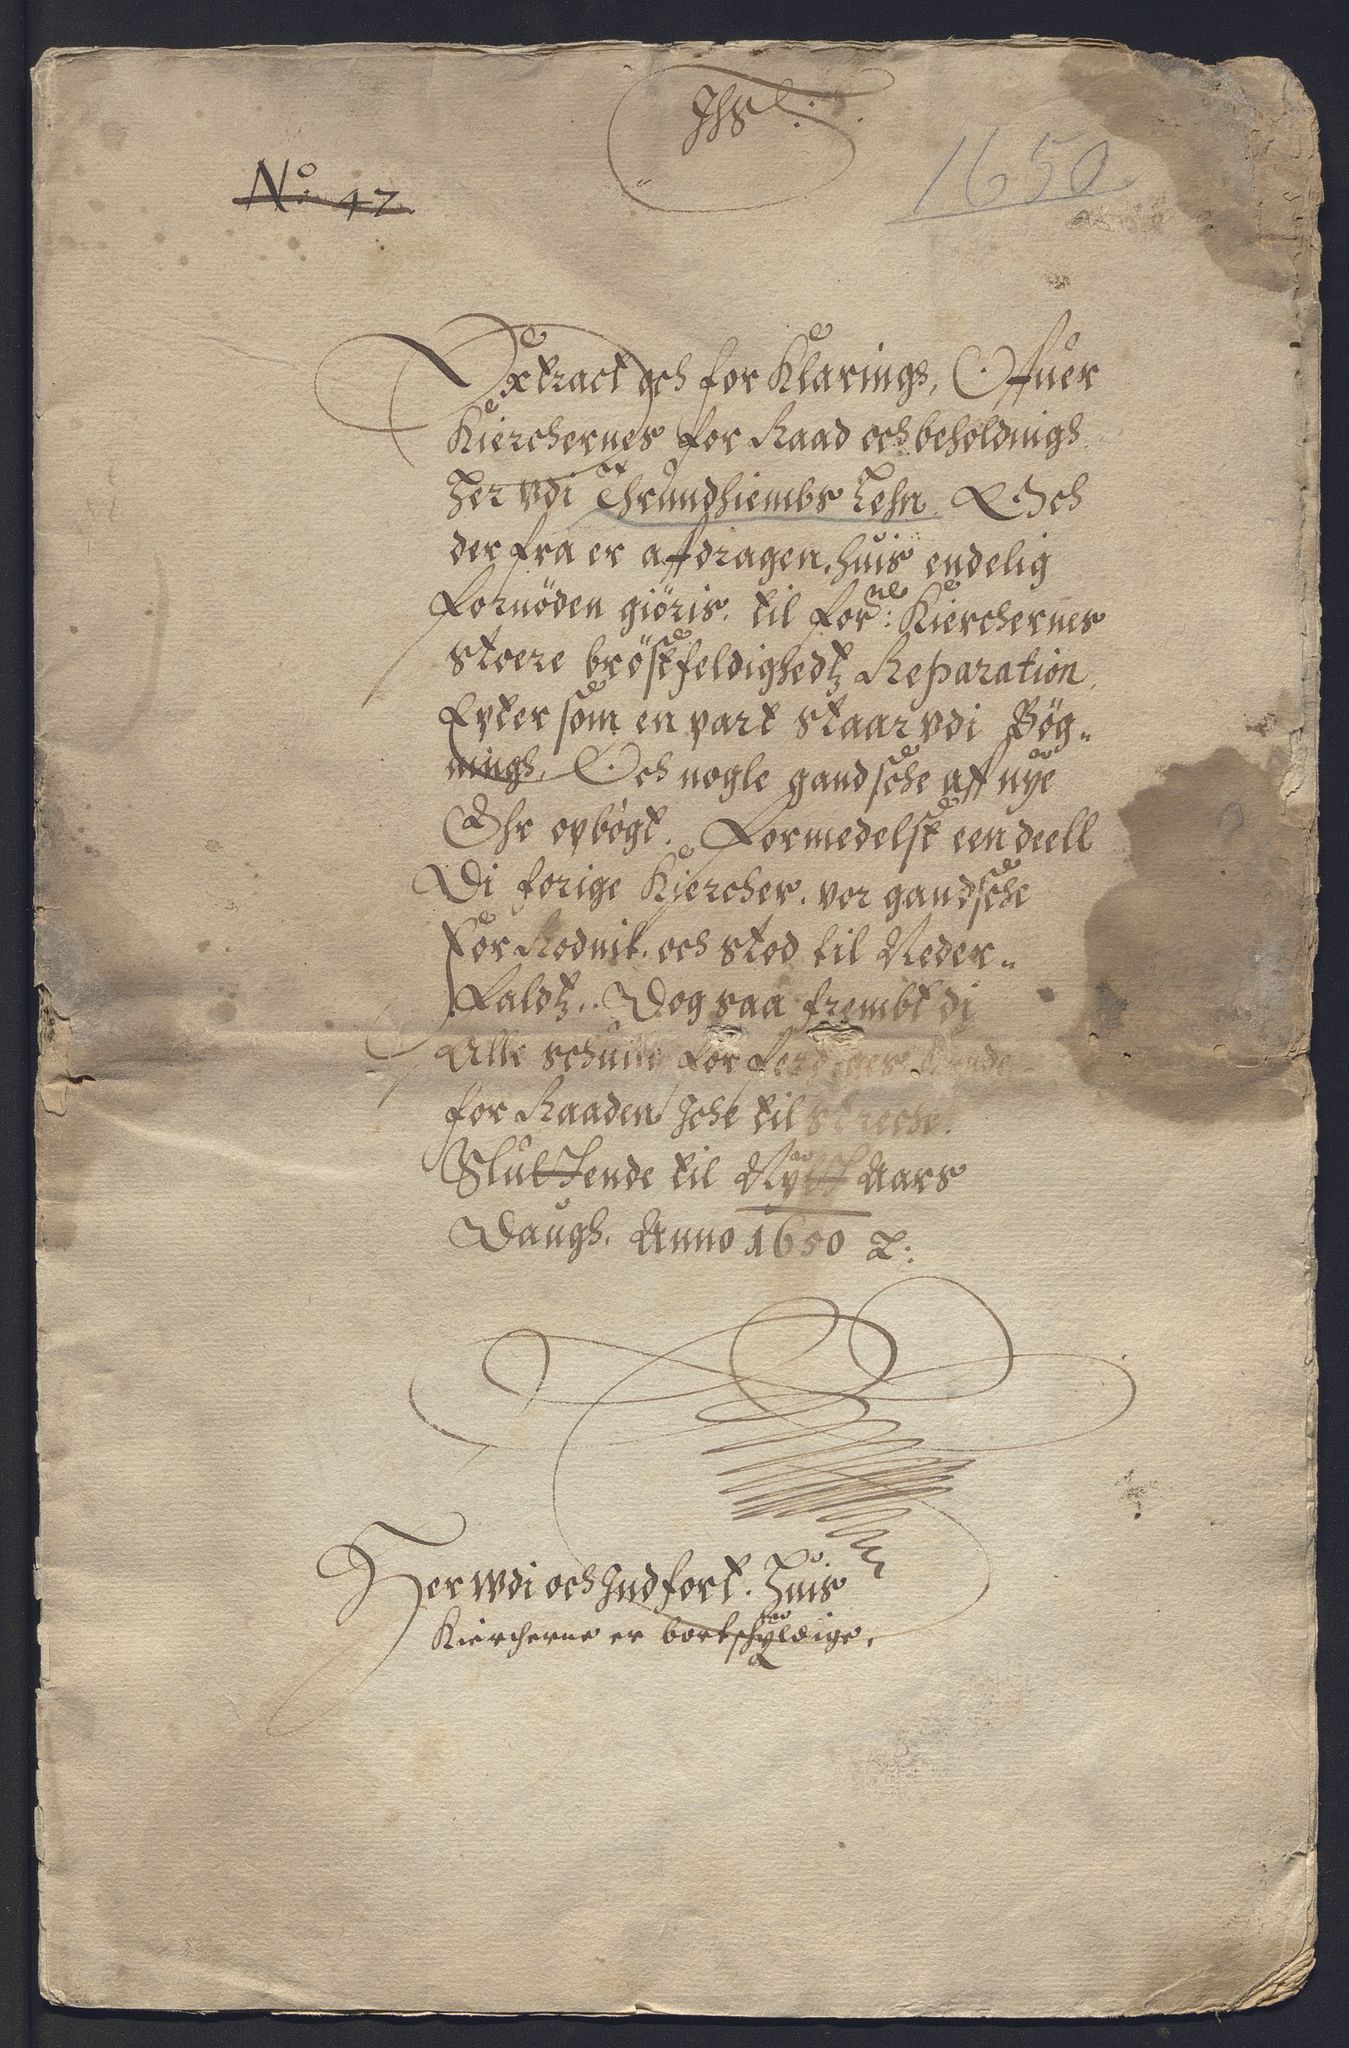 Jhs.
1650
No. 47.
Extract och for Klarings, Offuer
Kierchernes for Raad och beholdnigs
Her vdi Thrundhiembs Lehn. Och
der fra er affdragen. huis endelig
fornöden giöris. til forne: Kierchernes
stoere bröstfeldighedtz Reparation.
Epter som en part staar vdi Bög-
nings, Och nogle gandsche aff nye
Ehr opbögt. Formedelst een deell
Di forige Kiercher. vor gandsche
for Rodnit. och stod til Neder-
Faldtz. Dog saa frembt di
Alle schulle for ferdiges
for Raaden Iche til Streche.
Sluttende til Nytt Aars
Daugh. Anno 1650
Her wdi och Indfort. Huis
Kircherne er bortschyldige.